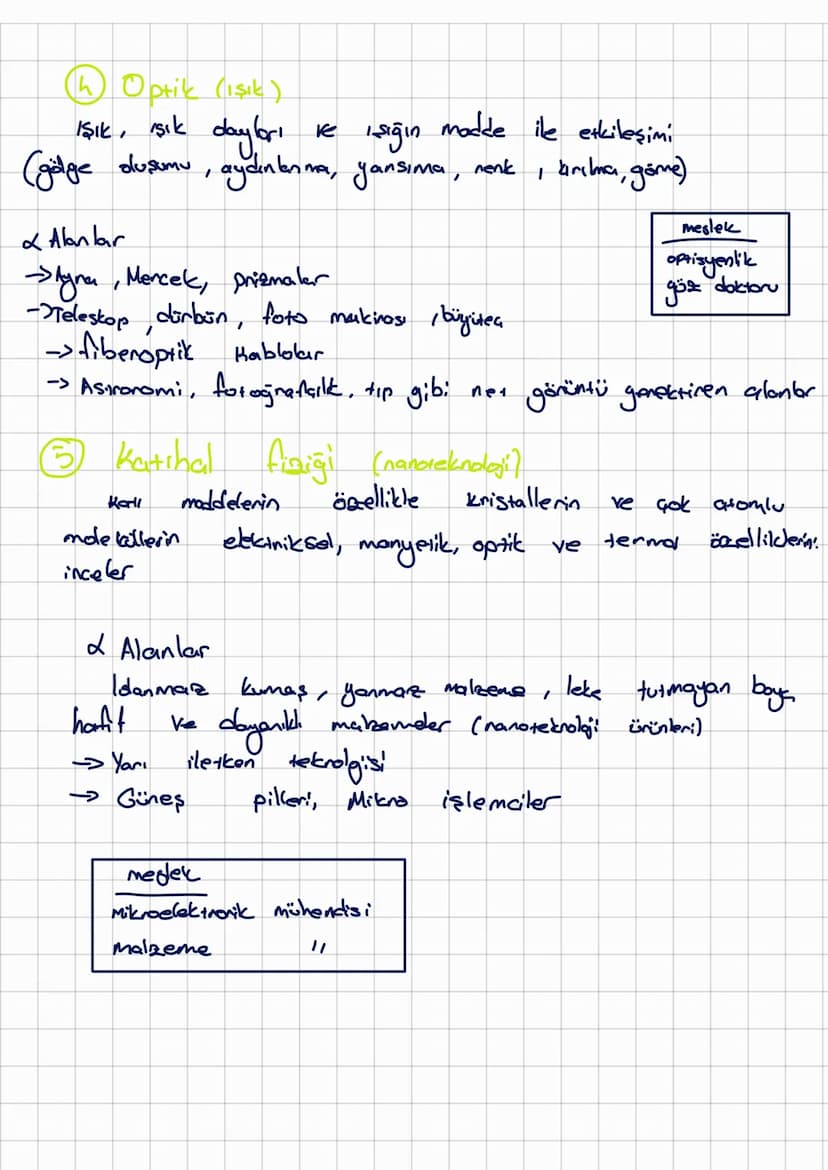 4 Optik (ışık)
Işık, ışık olayları ve ışığın madde ile etkileşimi
(gölge oluşumu, aydınlanma, yansıma, renk, kırılma, görme)
α Alanlar
→ Ayna, Mercek, prizmalar
→ Teleskop, dürbün, foto makinası, büyüteç
→ fiberoptik kablolar
→ Astronomi, fotoğrafçılık, tıp gibi net görüntü gerektiren alanlar
meslek
optisyenlik
göz doktoru
5 Katıhal fiziği (nanoteknoloji)
Katı maddelerin özellikle kristallerin ve çok atomlu
moleküllerin elektriksel, manyetik, optik ve termal özelliklerini
inceler
α Alanlar
Islanmaz kumaş, yanmaz malzeme, leke tutmayan boya,
hafif ve dayanıklı malzemeler (nanoteknoloji ürünleri)
→ Yarı iletken teknolojisi
→ Güneş pilleri, Mikro işlemciler
meslek
Mikroelektronik mühendisi
Malzeme "